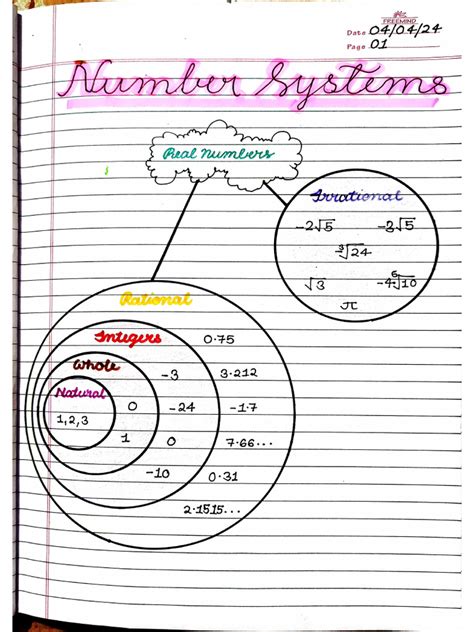 FREEMIND
Date 04/04/24
Page 01
Number Systems
Real numbers
Irrational
-2√5 -3√5
³√24
√3 -4⁶√10
π
Rational
Integers 0.75
Whole -3 3.212
Natural
1,2,3 0 -24 -1.7
1 0 7.66...
-10 0.31
2.1515...